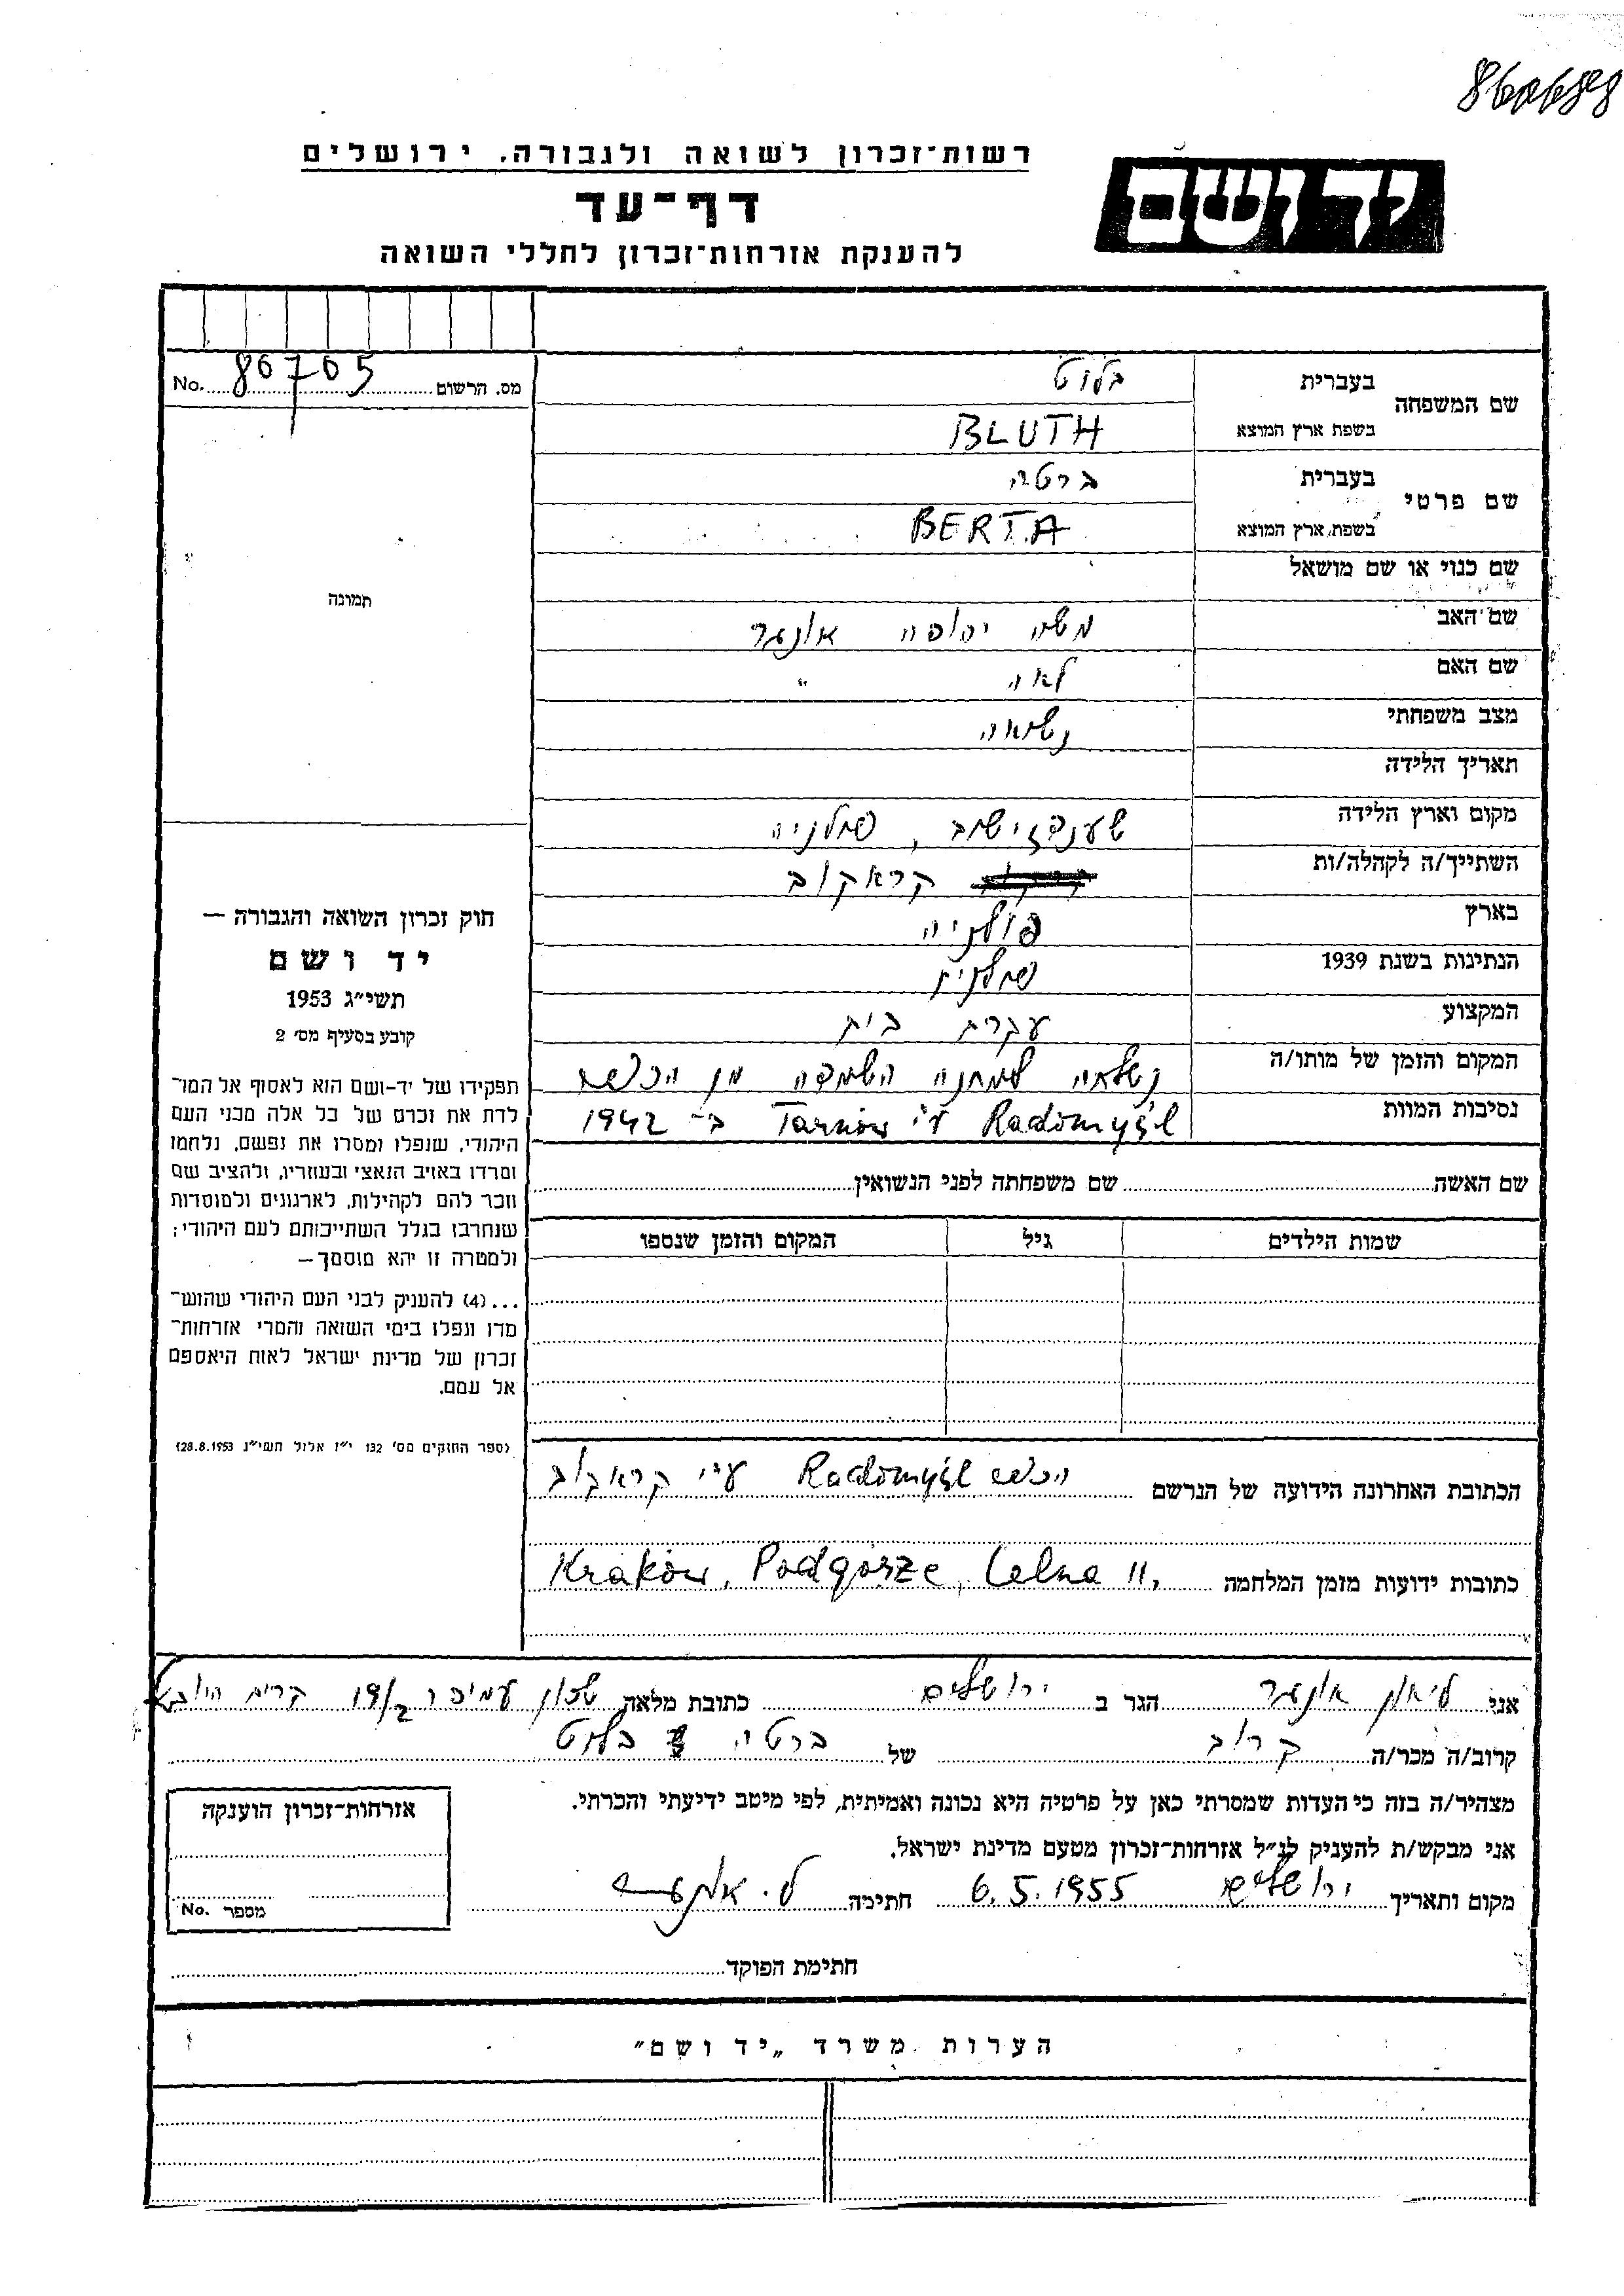 רשות־זכרון לשואה ולגבורה. ירושלים
יד ושם
דף־עד
להענקת אזרחות־זכרון לחללי השואה
No. 86705 מס. הרשום
שם המשפחה בעברית בלוט
בשפת ארץ המוצא BLUTH
שם פרטי בעברית ברטה
בשפת ארץ המוצא BERTA
שם כנוי או שם מושאל
שם האב משה יהודה אונגר
שם האם לאה "
מצב משפחתי נשואה
תאריך הלידה
מקום וארץ הלידה פולניה
השתייך/ה לקהלה/ות קראקוב
בארץ פולניה
הנתינות בשנת 1939 פולנית
המקצוע עקרת בית
המקום והזמן של מותו/ה נשלחה למחנה השמדה מן הכפר
נסיבות המוות Radomyśl ע"י Tarnów ב־ 1942
שם האשה שם משפחתה לפני הנשואין
שמות הילדים גיל המקום והזמן שנספו
הכתובת האחרונה הידועה של הנרשם הכפר Radomyśl ע"י קראקוב
כתובות ידועות מזמן המלחמה Kraków, Podgórze, Celna 11.
תמונה
חוק זכרון השואה והגבורה —
יד ושם
תשי״ג 1953
קובע בסעיף מס׳ 2
תפקידו של יד־ושם הוא לאסוף אל המו־
לדת את זכרם של כל אלה מבני העם
היהודי, שנפלו ומסרו את נפשם, נלחמו
ומרדו באויב הנאצי ובעוזריו, ולהציב שם
וזכר להם לקהילות, לארגונים ולמוסדות
שנחרבו בגלל השתייכותם לעם היהודי;
ולמטרה זו יהא מוסמך —
...(4) להעניק לבני העם היהודי שהוש־
מדו ונפלו בימי השואה והמרי אזרחות־
זכרון של מדינת ישראל לאות היאספם
אל עמם.
(ספר החוקים מס׳ 132 י״ז אלול תשי״ג 28.8.1953)
אני ליאון אונגר הגר ב ירושלים כתובת מלאה שכון עמידר 19/2 קרית היובל
קרוב/ה מכר/ה קרוב של ברטה בלוט
מצהיר/ה בזה כי העדות שמסרתי כאן על פרטיה היא נכונה ואמיתית, לפי מיטב ידיעתי והכרתי.
אני מבקש/ת להעניק לנ״ל אזרחות־זכרון מטעם מדינת ישראל.
מקום ותאריך ירושלים 6.5.1955 חתימה ל. אונגר
אזרחות־זכרון הוענקה
No. מספר
חתימת הפוקד
הערות משרד „יד ושם״